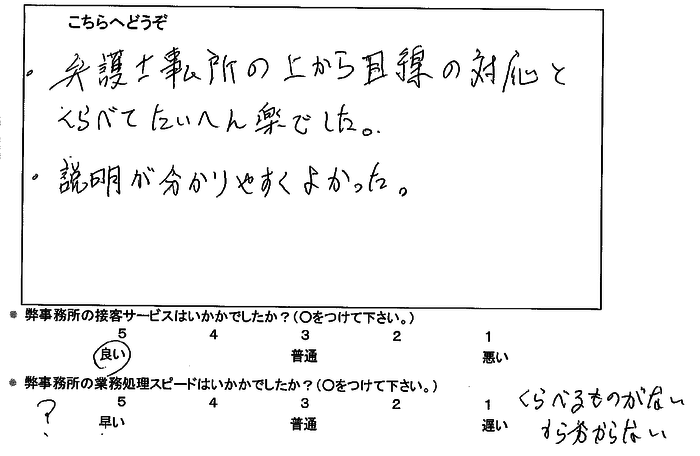 こちらへどうぞ
・弁護士事ム所の上から目線の対応と
くらべてたいへん楽でした。
・説明が分かりやすくよかった。
● 弊事務所の接客サービスはいかかでしたか?(○をつけて下さい。)
5 4 3 2 1
良い 普通 悪い
● 弊事務所の業務処理スピードはいかかでしたか?(○をつけて下さい。)
? 5 4 3 2 1 くらべるものがない
早い 普通 遅い から分からない